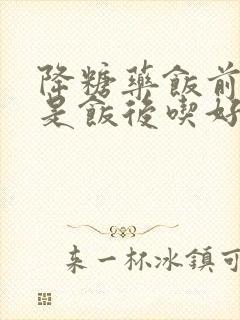 降糖藥飯前
是飯後喫好
来一杯冰鎮可